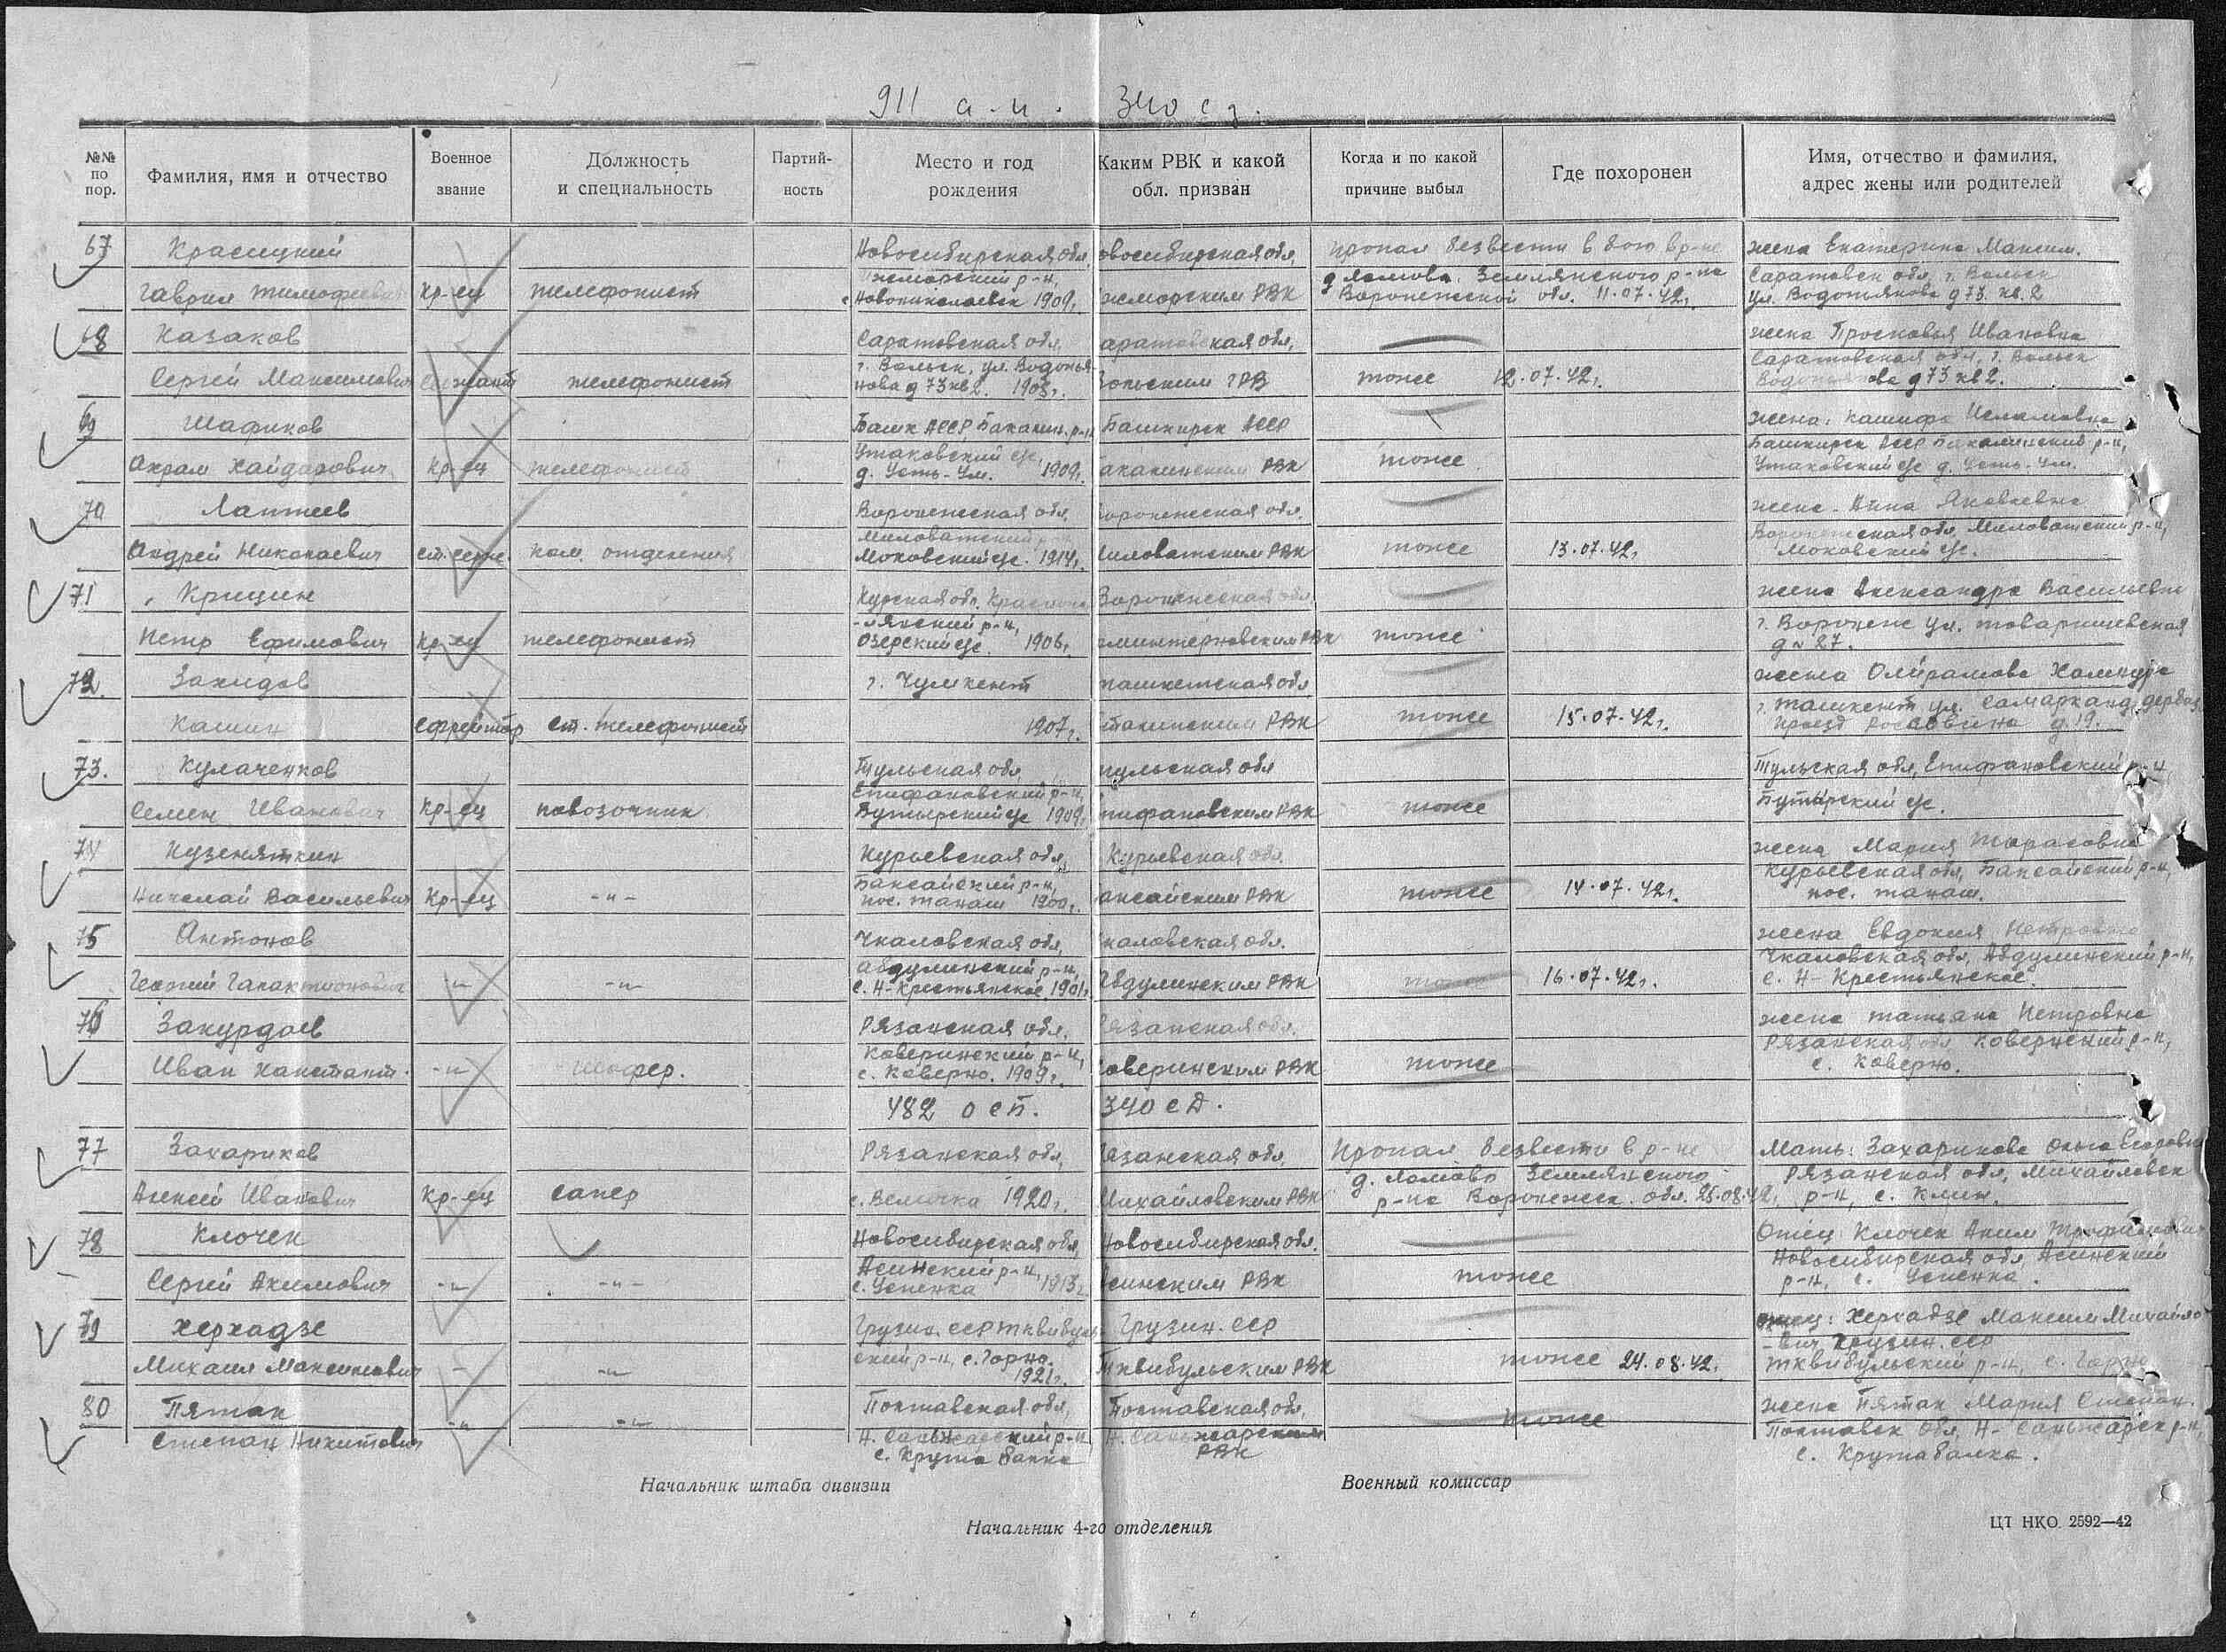 911 а.п. 340 сд.
№№ по пор.
Фамилия, имя и отчество
Военное звание
Должность и специальность
Партий-ность
Место и год рождения
Каким РВК и какой обл. призван
Когда и по какой причине выбыл
Где похоронен
Имя, отчество и фамилия, адрес жены или родителей
67 Красицкий Новосибирская обл. овосибирская обл. пропал безвести в бою в р-не жена Екатерина Максим.
жморский р-н, д Ломова Землянского р-на Саратовск обл. г. Вольск
Гаврил Тимофеевич кр-ец телефонист с Новониколаевск 1909г. жморским РВК Воронежской обл. 11.07.42г. ул. Водопьянова д 73. кв. 2
68 Казаков Саратовская обл, аратовская обл, жена Просковья Ивановна
г. Вольск, ул. Водопья Саратовская обл, г. Вольск
Сергей Максимович сержант телефонист нова д 73 кв 2. 1903г. Вольским ГРВ тоже 12.07.42г. д 73 кв 2.
69 Шафиков Башк АССР, Бакалин. р-н Башкирск АССР жена: Кашифа Исламовна
Умаковский с/с, Башкирск АССР Бакалинский р-н,
Акрам Хайдарович кр-ец телефонист д. Усть-Ум. 1909г. акалинским РВК тоже Умаковский с/с д. Усть-Ум.
70 Лаптеев Воронежская обл. Воронежская обл. жена - Анна Яковлевна
Миловатский Воронежская обл, Миловатский р-н,
Андрей Николаевич ст. серж. ком. отделения Моховский с/с. 1914г. Миловатским РВК тоже 13.07.42г. Моховский с/с.
71 Крицин Курская обл. Красноно Воронежская обл жена Александра Васильевн
-лянский р-н, г. Воронеж ул. товарищевская
Петр Ефимович кр-ец телефонист Озерский с/с. 1906г. оминтерновским РВК тоже д № 27.
72. Закидов г. Чумкент ташкетская обл жена
г. Ташкент ул. Самарканд, дербаз
Кашин ефрейтор ст. телефонист 1907г. РВК тоже 15.07.42г. проезд д. 19.
73. Кулаченков Тульская обл, тульская обл Тульская обл, Епифановский р-н
Епифановский р-н,
Семен Иванович кр-ец повозочник Бутырский с/с 1909г. пифановским РВК тоже Бутырский с/с.
74 Кузеняткин Курьевская обл, Курьевская обл. жена Мария Тарасовна
Баксайский р-н, Курьевская обл, Баксайский р-н,
Николай Васильевич кр-ец -"- пос. танаш 1900г. аксайским РВК тоже 14.07.42г. пос. танаш.
75 Антонов Чкаловская обл, каловская обл. жена Евдокия Петровна
Абдулинский р-н, Чкаловская обл, Абдулинский р-н,
Георгий Галактионович -"- -"- с. Н-Крестьянское 1901г Абдулинским РВК тоже 16.07.42г. с. Н-Крестьянское.
76 Закурдаев Рязанская обл. Рязанская обл. жена татьяна Петровна
Каверинский р-н, Рязанская обл Каверинский р-н,
Иван Канстант. -"- шофер. с. Каверно. 1909г. Каверинским РВК тоже с. Каверно.
482 осп. 340 сд.
77 Захариков Рязанская обл, Рязанская обл, Пропал безвести в р-не Мать: Захарикова
д. Ломово Землянского Рязанская обл, Михайловск
Алексей Иванович кр-ец сапер 1920г. Михайловским РВК р-на Воронежск. обл. 25.08.42, р-н, с. Клин.
78 Клочек Новосибирская обл, Новосибирская обл. Отец Клочек Аким
Асинский р-н, Новосибирская обл, Асинский
Сергей Акимович -"- -"- с. Успенка 1913г синским РВК тоже р-н, с. Успенка.
79 Херхадзе Грузин. ССР Тквибуль- Грузин. ССР отец: Херхадзе Максим Михайло
ский р-н, с. Горна. -вич Грузин. ССР
Михаил Максимович -"- -"- 1921г. Тквибульским РВК тоже 24.08.42. Тквибульский р-н, с. Горна
80 Пятак Полтавская обл, Полтавская обл, жена Пятак Мария Степан.
Степан Никитович -"- -"- Н. Санжарский р-н Н. Санжарским тоже Полтавск обл, Н-Санжарск р-н,
с. Крута балка РВК с. Крутабалка.
Начальник штаба дивизии
Военный комиссар
Начальник 4-го отделения
ЦТ НКО. 2592—42